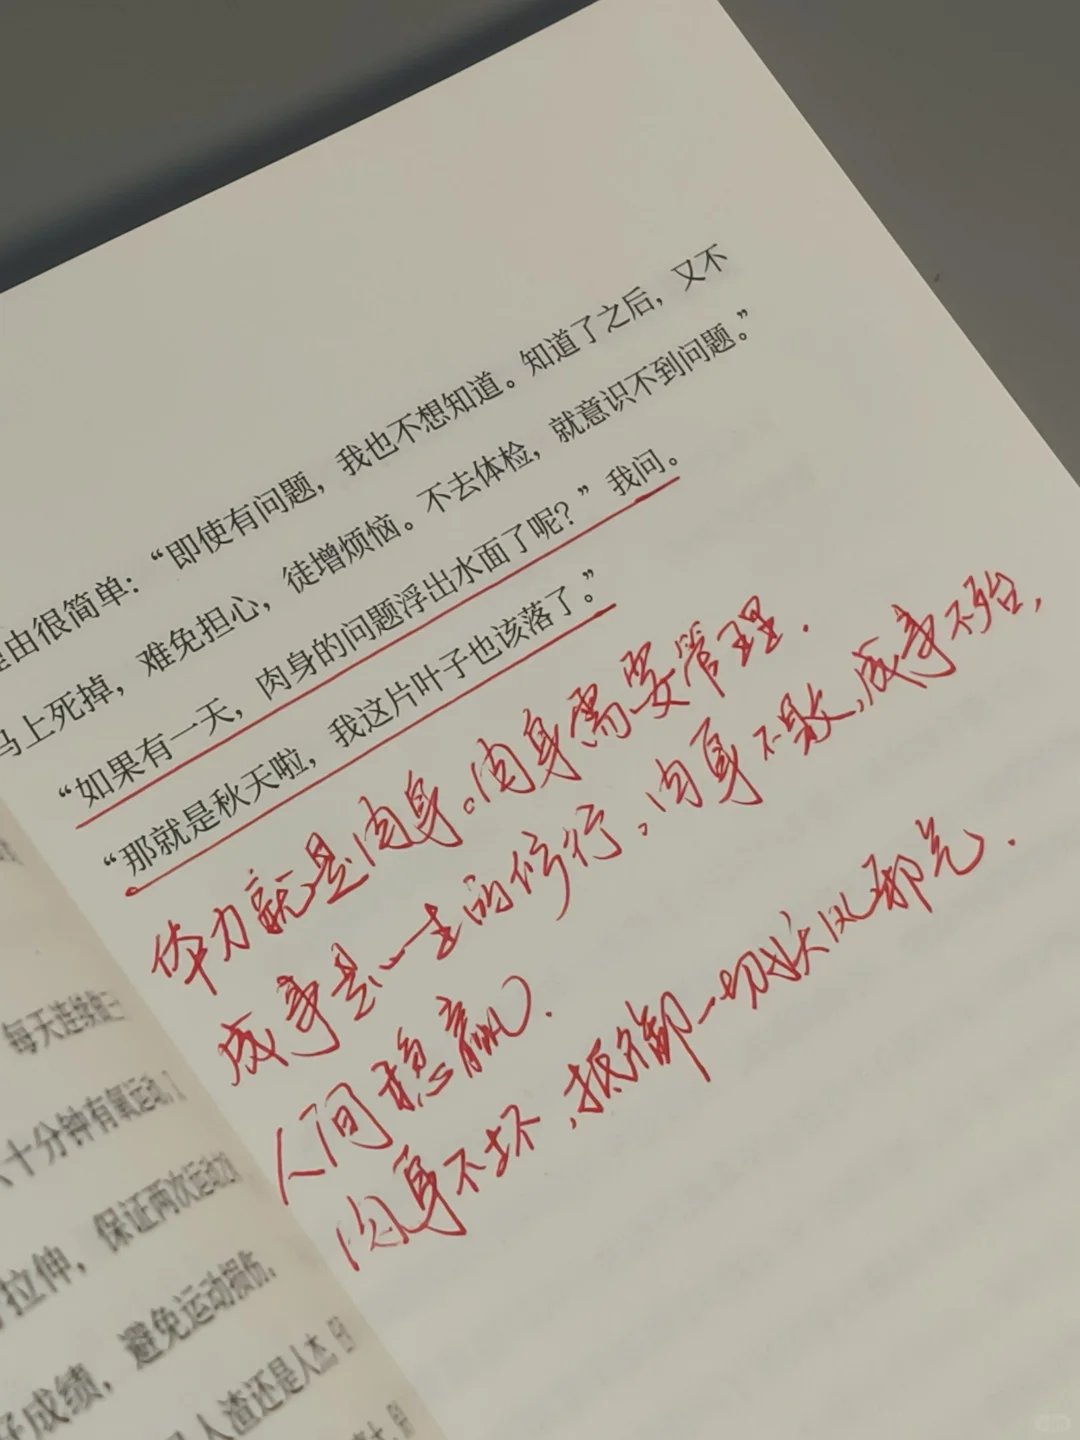 理由很简单：“即使有问题，我也不想知道。知道了之后，又不
马上死掉，难免担心，徒增烦恼。不去体检，就意识不到问题。”
“如果有一天，肉身的问题浮出水面了呢？”我问。
“那就是秋天啦，我这片叶子也该落了。”
体力就是肉身。肉身需要管理.
成事是一生的修行，肉身不败，成事不殆，
人间稳赢.
肉身不坏，抵御一切妖风邪气.
每天连续
十分钟有氧运动
拉伸，保证两次运动
好成绩，避免运动损伤。
人渣还是人杰